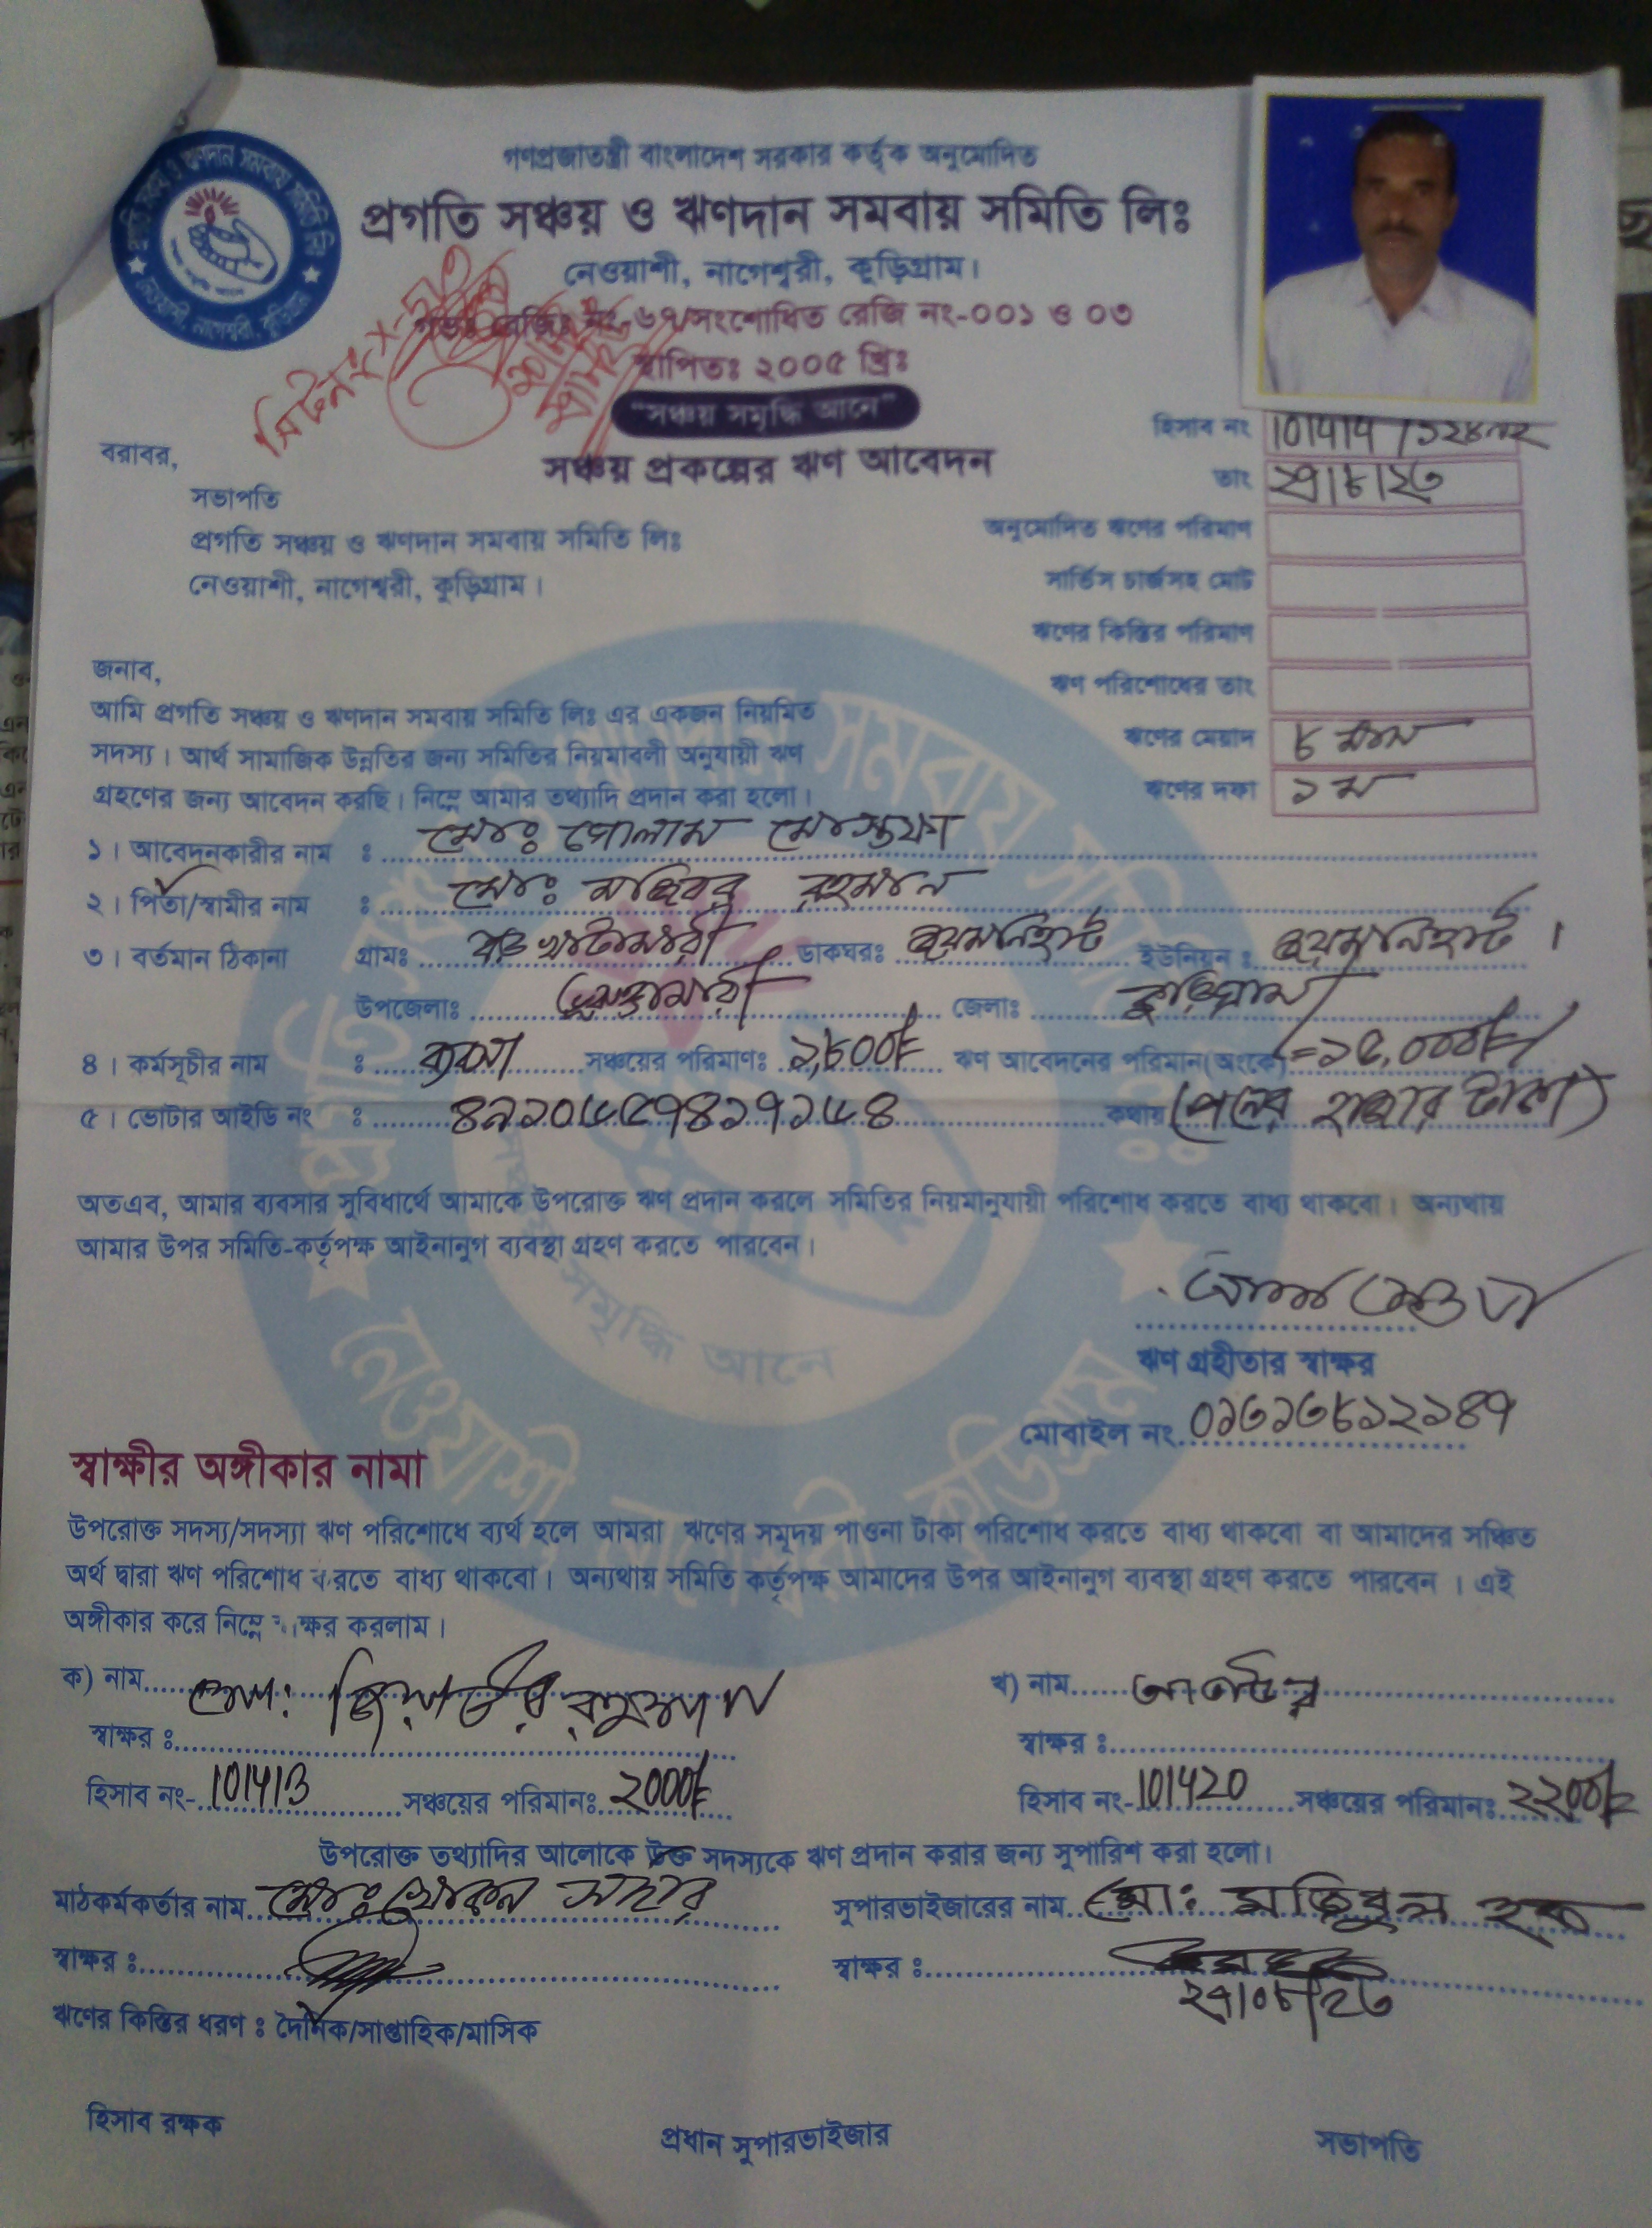 গণপ্রজাতন্ত্রী বাংলাদেশ সরকার কর্তৃক অনুমোদিত
প্রগতি সঞ্চয় ও ঋণদান সমবায় সমিতি লিঃ
নেওয়াশী, নাগেশ্বরী, কুড়িগ্রাম।
রেজিঃ নং-৬৭/সংশোধিত রেজি নং-০০১ ও ০৩
স্থাপিতঃ ২০০৫ খ্রিঃ
"সঞ্চয় সমৃদ্ধি আনে"
সঞ্চয় প্রকল্পের ঋণ আবেদন
হিসাব নং 101414
তাং ২৭/৮/২৩
অনুমোদিত ঋণের পরিমাণ
সার্ভিস চার্জসহ মোট
ঋণের কিস্তির পরিমাণ
ঋণ পরিশোধের তাং
ঋণের মেয়াদ ৮ মাস
ঋণের দফা ১ম
বরাবর,
সভাপতি
প্রগতি সঞ্চয় ও ঋণদান সমবায় সমিতি লিঃ
নেওয়াশী, নাগেশ্বরী, কুড়িগ্রাম।
জনাব,
আমি প্রগতি সঞ্চয় ও ঋণদান সমবায় সমিতি লিঃ এর একজন নিয়মিত
সদস্য। আর্থ সামাজিক উন্নতির জন্য সমিতির নিয়মাবলী অনুযায়ী ঋণ
গ্রহণের জন্য আবেদন করছি। নিম্নে আমার তথ্যাদি প্রদান করা হলো।
১। আবেদনকারীর নাম : মোঃ গোলাম মোস্তফা
২। পিতা/স্বামীর নাম : মোঃ মজিবর রহমান
৩। বর্তমান ঠিকানা গ্রামঃ বড় খাটামারী ডাকঘরঃ জয়মনিহাট ইউনিয়ন : জয়মনিহাট।
উপজেলাঃ ভূরুঙ্গামারী জেলাঃ কুড়িগ্রাম
৪। কর্মসূচীর নাম : ব্যবসা সঞ্চয়ের পরিমাণঃ ১,৮০০/= ঋণ আবেদনের পরিমান(অংকে) =১৫,০০০/=
৫। ভোটার আইডি নং : কথায় (পনের হাজার টাকা)
অতএব, আমার ব্যবসার সুবিধার্থে আমাকে উপরোক্ত ঋণ প্রদান করলে সমিতির নিয়মানুযায়ী পরিশোধ করতে বাধ্য থাকবো। অন্যথায়
আমার উপর সমিতি-কর্তৃপক্ষ আইনানুগ ব্যবস্থা গ্রহণ করতে পারবেন।
ঋণ গ্রহীতার স্বাক্ষর
মোবাইল নং ০১৩১৩৮১২১৪৭
স্বাক্ষীর অঙ্গীকার নামা
উপরোক্ত সদস্য/সদস্যা ঋণ পরিশোধে ব্যর্থ হলে আমরা ঋণের সমূদয় পাওনা টাকা পরিশোধ করতে বাধ্য থাকবো বা আমাদের সঞ্চিত
অর্থ দ্বারা ঋণ পরিশোধ করতে বাধ্য থাকবো। অন্যথায় সমিতি কর্তৃপক্ষ আমাদের উপর আইনানুগ ব্যবস্থা গ্রহণ করতে পারবেন। এই
অঙ্গীকার করে নিম্নে স্বাক্ষর করলাম।
ক) নাম মোঃ জিয়াউর রহমান খ) নাম আতাউর
স্বাক্ষর : স্বাক্ষর :
হিসাব নং- 101413 সঞ্চয়ের পরিমানঃ ২000/= হিসাব নং- 101420 সঞ্চয়ের পরিমানঃ ২২00/=
উপরোক্ত তথ্যাদির আলোকে উক্ত সদস্যকে ঋণ প্রদান করার জন্য সুপারিশ করা হলো।
মাঠকর্মকর্তার নাম মোঃ খোকন সুপারভাইজারের নাম মোঃ মজিবুল হক
স্বাক্ষর : স্বাক্ষর :
২৭/০৮/২৩
ঋণের কিস্তির ধরণ : দৈনিক/সাপ্তাহিক/মাসিক
হিসাব রক্ষক প্রধান সুপারভাইজার সভাপতি